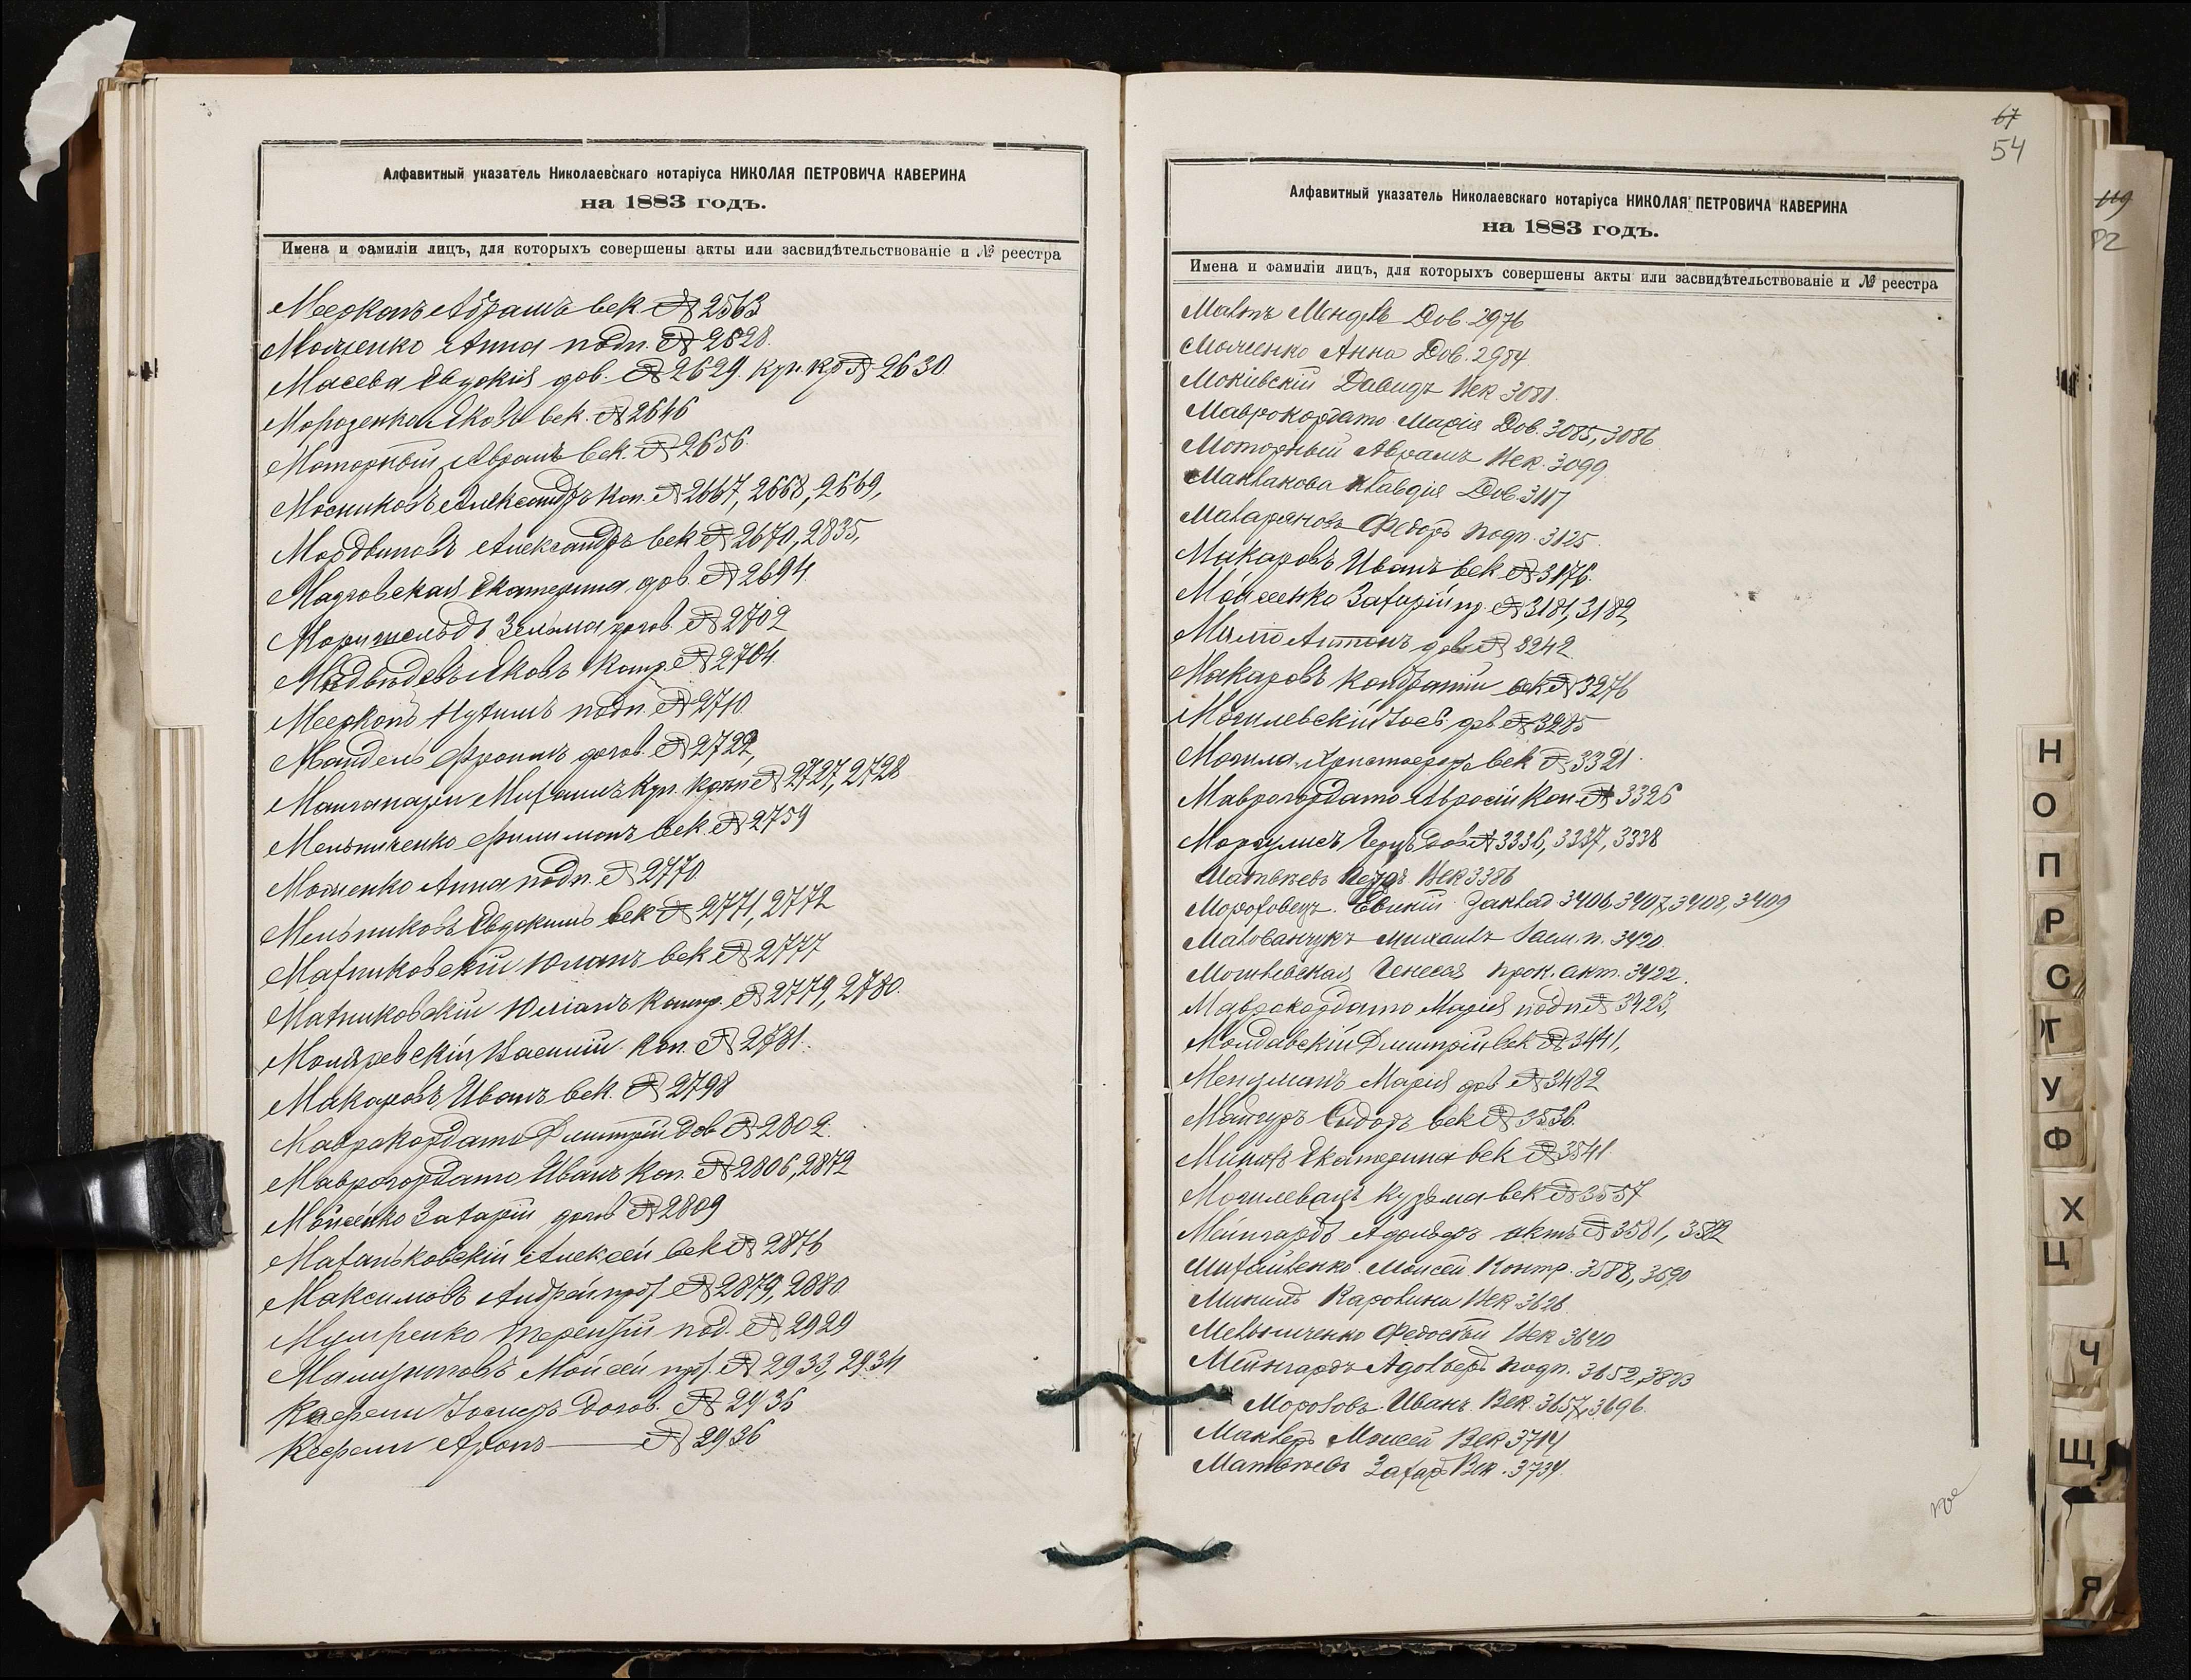 Алфавитный указатель Николаевскаго нотаріуса НИКОЛАЯ ПЕТРОВИЧА КАВЕРИНА
на 1883 годъ.
Имена и фамиліи лицъ, для которыхъ совершены акты или засвидѣтельствованіе и № реестра
Абрамъ век. № 2563
Анна подп. № 2628.
Масева Евдокія дов. № 2629. куп. кр № 2630
Морозенко Яковъ век. № 2646
Моторный Абрамъ век. № 2656.
Александръ коп. № 2667, 2668, 2669,
Мордвиновъ Александръ век № 2670, 2835,
Екатерина дов. № 2694.
Зельма догов. № 2702
Медвѣдевъ Яковъ контр. № 2704.
подп. № 2710
Мандель Фроимъ догов. № 2722,
Мангапари Михаилъ куп. крѣп № 2727, 2728
Мельниченко Филимонъ век. № 2759
Анна подп. № 2770
Мельниковъ Евдокимъ век № 2771, 2772
Махниковскій Юліанъ век № 2777
Махниковскій Юліанъ контр. № 2779, 2780.
Василій коп. № 2781.
Макаровъ Иванъ век. № 2798
Маврокордато Дмитрій дов № 2802.
Маврогордато Иванъ коп. № 2806, 2872
Мойсенко Захарій догов № 2809
Маханьковскій Алексей век № 2876
Максимовъ Андрей прот № 2879, 2880
Терентій под. № 2929
Мойсей прот. № 2933, 2934
Кефели Іосифъ догов. № 2936
Кефели Аронъ — № 2936
67
54
Алфавитный указатель Николаевскаго нотаріуса НИКОЛАЯ ПЕТРОВИЧА КАВЕРИНА
на 1883 годъ.
Имена и фамиліи лицъ, для которыхъ совершены акты или засвидѣтельствованіе и № реестра
Мендель Дов. 2976
Анна Дов. 2984.
Мокіевскій Давидъ Век 3081.
Маврокордато Марія Дов. 3085, 3086
Моторный Абрамъ Век. 3099
Маклакова Клавдія Дов. 3117
Федоръ подп. 3125
Макаровъ Иванъ век № 3176.
Мойсенко Захарій пр. № 3181, 3182
Антонъ дов № 3242
Макаровъ Кондратій век № 3276
Могилевскій Іосѣ дов № 3285
Могила Христофоръ век № 3321.
Маврогордато Амвросій коп № 3326
Моргулисъ Герцъ дов № 3336, 3337, 3338
Матвѣевъ Петръ Век 3386
Мороховецъ Евгеній Заклад 3406, 3407, 3408, 3409
Малованчукъ Михаилъ Засм. п. 3420.
Могилевская Генесея прок. акт. 3422.
Маврокордато Марія подп № 3423,
Молдавскій Дмитрій век № 3441,
Марія дов № 3482
Сидоръ век № 3536.
Екатерина век № 3541.
Могилевацъ Кузьма век № 3557
Мейнгардъ Адольфъ актъ № 3581, 3582
Михайленко Моисей Контр. 3588, 3590
Каролина Век 3626
Мельниченко Федосѣй Век 3640
Мейнгардъ Адольфъ подп. 3652, 3823
Морозовъ Иванъ Век. 3657, 3696.
Маклеръ Моисей Век 3714
Матвѣевъ Захаръ Век. 3734.
119
82
Н
О
П
Р
С
Т
У
Ф
Х
Ц
Ч
Щ
Я